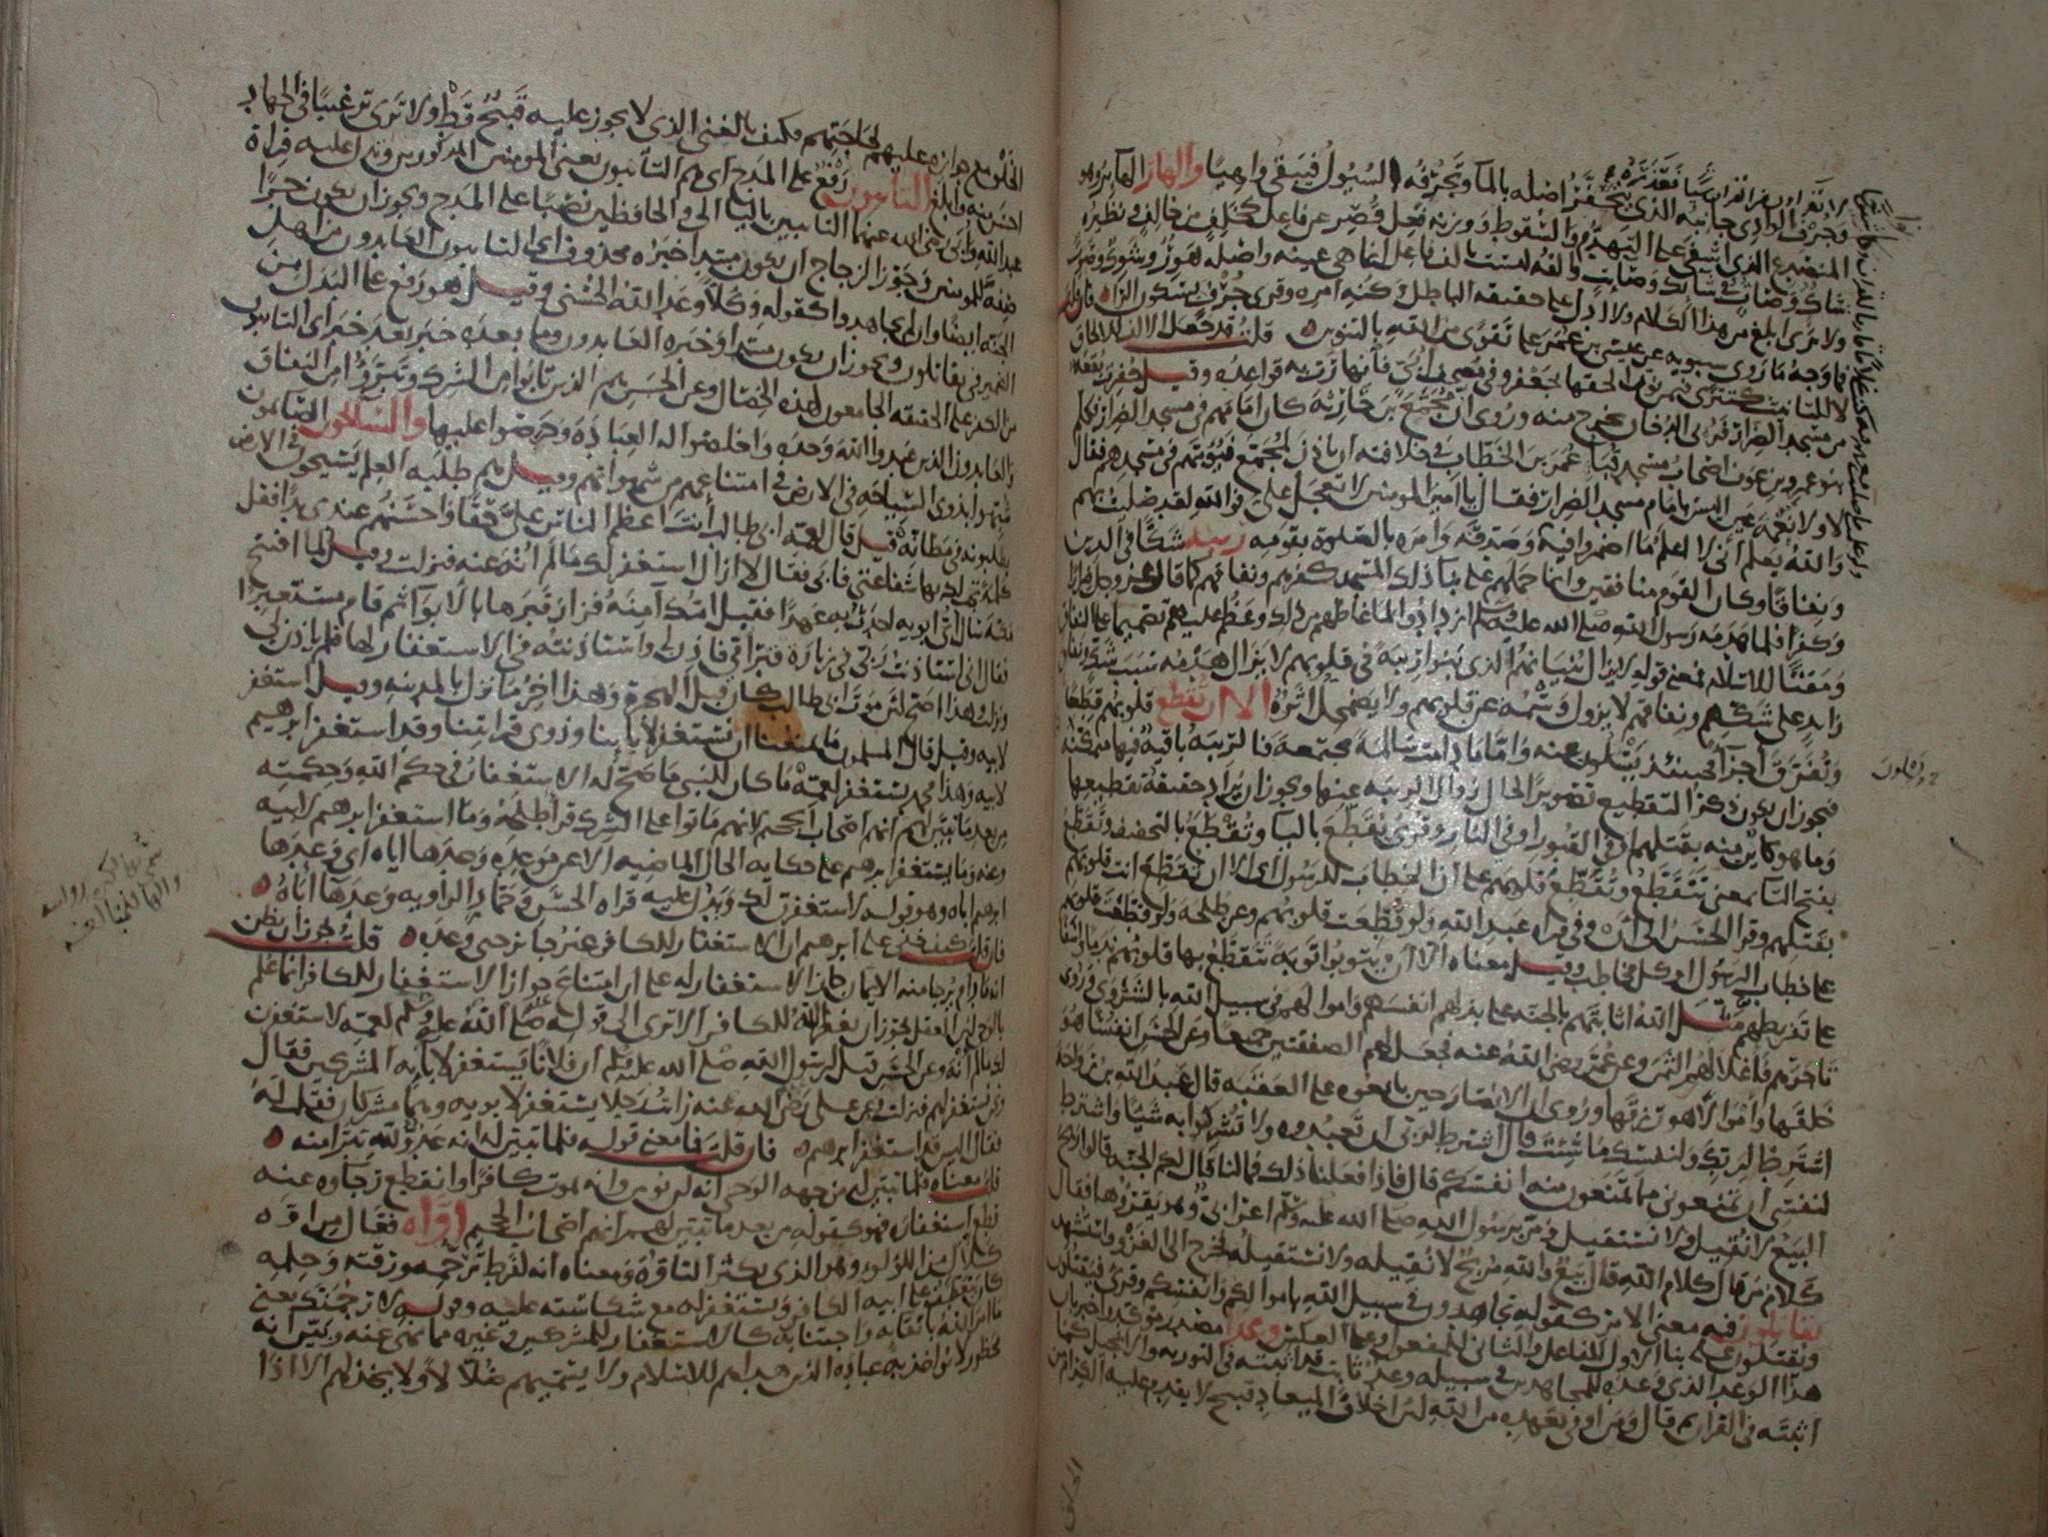 وجُرُف الوادي جانبه الذي يتحفّر اصله بالمآ وتجرفه السيول فيبقى واهيًا والهار الهاير وهو
المتصدع الذي اشفى على التهدم والسقوط ووزنه فعل قُصّر عن فاعل كخَلِف من خالف ونظيره
شاك وصات في شايك وصايت والفه ليست بالف فاعل انما هي عينه واصله هَوِر وشَوِك وصَوِت
ولا ترى ابلغ من هذا الكلام ولا ادل على حقيقة الباطل وكنه امره وقرئ جُرْف بسكون الرا فان قلت
فما وجه ما روى سيبويه عن عيسى بن عمر على تقوًى من الله بالتنوين قلت قد جعل الالف للالحاق
لا للتانيث كتترى فيمن نوّن الحقها بجعفر وفي مصحف ابيّ فانهارت به قواعده وقيل حُفرت بقعة
من مسجد الضرار فرئي الدخان يخرج منه ورُوى ان مُجمّع بن حارثة كان امامهم في مسجد الضرار فكلم
بنو عمرو بن عوف اصحاب مسجد قبا عمر بن الخطاب في خلافته ان ياذن لمجمع فيؤمهم في مسجدهم فقال
لا ولا نعمة عين اليس بامام مسجد الضرار فقال يا امير المومنين لا تعجل عليّ فوالله لقد صليت بهم
والله يعلم اني لا اعلم ما اضمروا فيه وصدقه وامره بالصلوة بقومه ريبة شكًّا في الدين
ونفاقا وكان القوم منافقين وانما حملهم على بنا ذلك المسجد كفرهم ونفاقهم كما قال عز وجل ضرارًا
وكفرًا فلما هدمه رسول الله صلى الله عليه وسلم ازدادوا لما غاظهم من ذلك وعظم عليهم تصميما على النفاق
ومقتًا للاسلام فمعنى قوله لا يزال بنيانهم الذي بنوا ريبة في قلوبهم لا يزال هدمه سبب شك ونفاق
زايد على شكهم ونفاقهم لا يزول وسمه عن قلوبهم ولا يضمحل اثره الا ان تقطع قلوبهم قطعًا
وتُفرّق اجزآ فحينئذ يسلون عنه واما ما دامت سالمة مجتمعة فالريبة باقية فيها متمكنة
فيجوز ان يكون ذكر التقطيع تصويرًا لحال زوال الريبة عنها ويجوز ان يُراد حقيقة تقطيعها
وما هو كاين منه بقتلهم او في القبور او في النار وقرئ يُقَطّع باليا وتُقطع بالتخفيف وتقطع
بفتح التا بمعنى تتقطع وتُقَطّع قلوبهم على ان الخطاب للرسول اى الا ان تقطع انت قلوبهم
بقتلهم وقرا الحسن الى ان وفي قراة عبد الله ولو قُطّعت قلوبهم وعن طلحة ولو قَطّعت قلوبهم
على خطاب الرسول او كل مخاطب وقيل معناه الا ان يتوبوا توبة تتقطع بها قلوبهم ندما واسفا
على تفريطهم مثل الله اثابتهم بالجنة على بذلهم انفسهم واموالهم في سبيل الله بالشروى وروى
تاجرهم فاغلا لهم الثمن وعن عمر رضي الله عنه فجعل لهم الصفقتين جميعا وعن الحسن انفسًا هو
خلقها واموالًا هو رزقها وروى ان الانصار حين بايعوه على العقبة قال عبد الله بن رواحة
اشترط لربك ولنفسك ما شئت قال اشترط لربي ان تعبدوه ولا تشركوا به شيًا واشترط
لنفسي ان تمنعوني مما تمنعون منه انفسكم قال فاذا فعلنا ذلك فما لنا قال لكم الجنة قالوا ربح
البيع لا نُقيل ولا نستقيل ومرّ برسول الله صلى الله عليه وسلم اعرابي وهو يقرؤها فقال
كلام من قال كلام الله قال بيع والله مربح لا نُقيله ولا نستقيله فخرج الى الغزو واستشهد
يقاتلون فيه معنى الامر كقوله تجاهدون في سبيل الله باموالكم وانفسكم وقرئ فيقتلون
ويُقتلون على بنا الاول للفاعل والثاني للمفعول وعلى العكس وعدا مصدر موكد اخبر بان
هذا الوعد الذي وعده للمجاهدين في سبيله وعد ثابت قد اثبته في التورية والانجيل كما
اثبته في القران ثم قال ومن اوفى بعهده من الله لان اخلاف الميعاد قبيح لا يقدم عليه الكرام من
الخلق مع جوازه عليهم لحاجتهم فكيف بالغني الذي لا يجوز عليه قبيح قط ولا ترى ترغيبًا في الجهاد
احسن منه وابلغ التائبون رفع على المدح اى هم التائبون يعني المومنين المذكورين ويدل عليه قراة
عبد الله وابيّ رضي الله عنهما التائبين باليا الى والحافظين نصبًا على المدح ويجوز ان يكون جرًّا
صفة للمومنين وجوز الزجاج ان يكون مبتدا خبره محذوف اى التائبون العابدون من اهل
الجنة ايضا وان لم يجاهدوا كقوله وكلًّا وعد الله الحسنى وقيل هو رفع على البدل من
الضمير في يقاتلون ويجوز ان يكون مبتدا وخبره العابدون وما بعده خبر بعد خبر اى التائبون
من الكفر على الحقيقة الجامعون لهذه الخصال وعن الحسن هم الذين تابوا من الشرك وتبرؤا من النفاق
والعابدون الذين عبدوا الله وحده واخلصوا له العبادة وحرصوا عليها والسائحون الصائمون
شُبّهوا بذوي السياحة في الارض في امتناعهم من شهواتهم وقيل هم طلبة العلم يسيحون في الارض
يطلبونه في مظانّه قيل قال لعمه ابي طالب انت اعظم الناس عليّ حقًّا واحسنهم عندي يدًا فقل
كلمة تجب لك بها شفاعتي فابى فقال لا ازال استغفر لك ما لم اُنه عنه فنزلت وقيل لما افتتح
مكة سال اىّ ابويه احدث به عهدًا فقيل امك آمنة فزار قبرها بالابوآ ثم قام مستعبرًا
فقال اني استاذنت ربي في زيارة قبر امي فاذن لي واستاذنته في الاستغفار لها فلم ياذن لي
ونزل وهذا اصح لان موت ابي طالب كان قبل الهجرة وهذا اخر ما نزل بالمدينة وقيل استغفر
لابيه وقيل قال المسلمون ما يمنعنا ان نستغفر لآبآينا وذوي قرابتنا وقد استغفر ابرهيم
لابيه وهذا محمد يستغفر لعمه ما كان للنبي ما صح له الاستغفار في حكم الله وحكمته
من بعد ما تبين لهم انهم اصحاب الجحيم لانهم ماتوا على الشرك قرا طلحة وما استغفر ابرهيم لابيه
وعنه وما يستغفر ابرهيم على حكاية الحال الماضية الا عن موعدة وعدها اياه اى وعدها
ابرهيم اباه وهو قوله لاستغفرن لك ويدل عليه قراة الحسن وحماد الراوية وعدها اباه
فان قلت كيف خفي على ابرهيم ان الاستغفار للكافر غير جايز حتى وعده قلت يجوز ان يظن
انه ما دام يُرجا منه الايمان جاز الاستغفار له على ان امتناع جواز الاستغفار للكافر انما علم
بالوحي لان العقل يجوز ان يغفر الله للكافر الا ترى الى قوله صلى الله عليه وسلم لعمه لاستغفرن
لك ما لم اُنه وعن الحسن قيل لرسول الله صلى الله عليه وسلم ان فلانًا يستغفر لآبآيه المشركين فقال
ونحن نستغفر لهم فنزلت وعن علي رضي الله عنه رايت رجلا يستغفر لابويه وهما مشركان فقلت له
فقال اليس قد استغفر ابرهيم فان قلت فما معنى قوله فلما تبين له انه عدو لله تبرا منه
قلت معناه فلما تبين له من جهة الوحي انه لن يومن وانه يموت كافرًا وانقطع رجآوه عنه
قطع استغفاره فهو كقوله من بعد ما تبين لهم انهم اصحاب الجحيم اوّاه فعّال من اوّه
كلأّال من اللؤلؤ وهو الذي يكثر التاوّه ومعناه انه لفرط ترحمه ورقته وحلمه
كان يتعطف على ابيه الكافر ويستغفر له مع شكاسته عليه وقوله لارجمنّك يعني
ما امر الله باتقايه واجتنابه كالاستغفار للمشركين وغيره مما نهى عنه وبيّن انه
محظور لا يواخذ به عباده الذين هداهم للاسلام ولا يسميهم ضُلّالًا ولا يخذلهم الا اذا